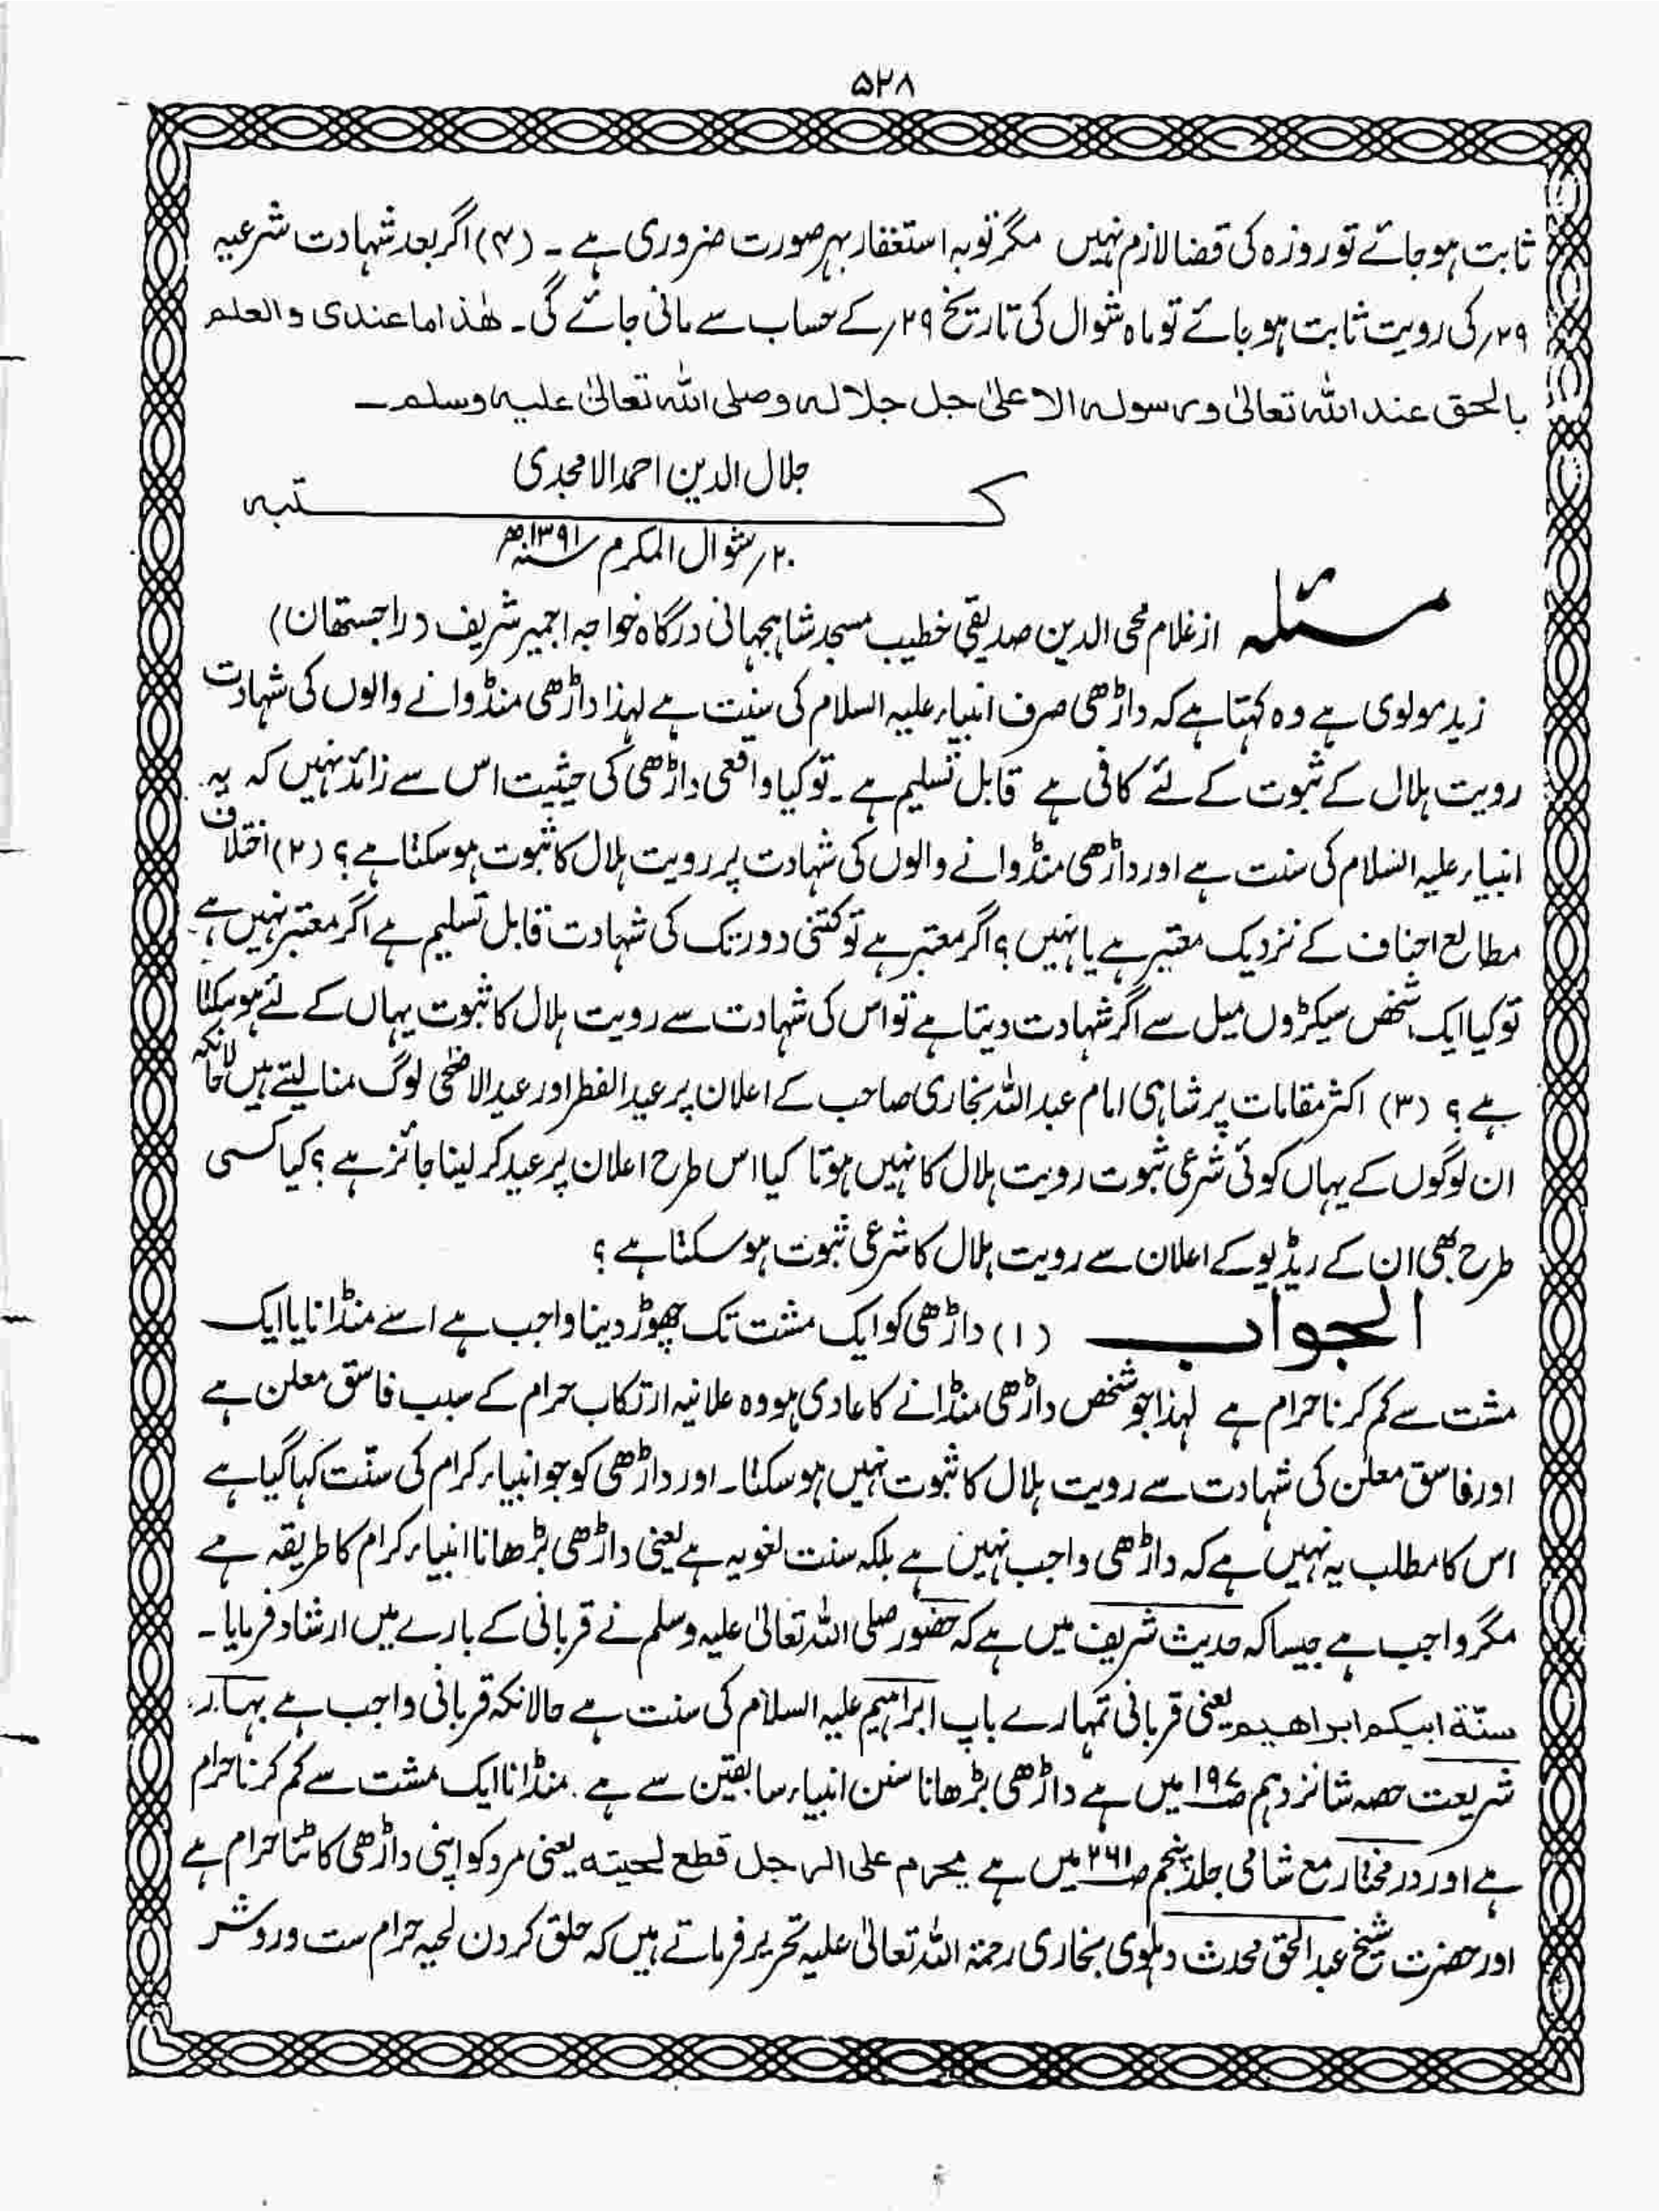 ۵۲۸
ثابت ہو جائے تو روزہ کی قضا لازم نہیں مگر توبہ استغفار بہر صورت ضروری ہے ۔ (۴) اگر بعد شہادت شرعیہ
۲۹؍ کی رویت ثابت ہو جائے تو ماہ شوال کی تاریخ ۲۹؍ کے حساب سے مانی جائے گی ۔ ھٰذا ما عندی والعلم
بالحق عند اللہ تعالیٰ ورسولہ الاعلیٰ جل جلالہ وصلی اللہ تعالیٰ علیہ وسلم ـ
جلال الدین احمد الامجدی
کتبہ
۲۰؍ شوال المکرم سنہ ۱۳۹۱ھ
مسئلہ از غلام محی الدین صدیقی خطیب مسجد شاہجہانی درگاہ خواجہ اجمیر شریف (راجستھان)
زید مولوی ہے وہ کہتا ہے کہ داڑھی صرف انبیاء علیہ السلام کی سنت ہے لہٰذا داڑھی منڈوانے والوں کی شہادت
رویت ہلال کے ثبوت کے لئے کافی ہے قابل تسلیم ہے ۔ تو کیا واقعی داڑھی کی حیثیت اس سے زائد نہیں کہ یہ
انبیاء علیہ السلام کی سنت ہے اور داڑھی منڈوانے والوں کی شہادت پر رویت ہلال کا ثبوت ہو سکتا ہے؟ (۲) اختلاف
مطالع احناف کے نزدیک معتبر ہے یا نہیں؟ اگر معتبر ہے تو کتنی دور تک کی شہادت قابل تسلیم ہے اگر معتبر نہیں ہے
تو کیا ایک شخص سیکڑوں میل سے اگر شہادت دیتا ہے تو اس کی شہادت سے رویت ہلال کا ثبوت یہاں کے لئے ہو سکتا
ہے؟ (۳) اکثر مقامات پر شاہی امام عبد اللہ بخاری صاحب کے اعلان پر عید الفطر اور عید الاضحٰی لوگ منا لیتے ہیں حالانکہ
ان لوگوں کے یہاں کوئی شرعی ثبوت رویت ہلال کا نہیں ہوتا کیا اس طرح اعلان پر عید کر لینا جائز ہے؟ کیا کسی
طرح بھی ان کے ریڈیو کے اعلان سے رویت ہلال کا شرعی ثبوت ہو سکتا ہے؟
الجواب (۱) داڑھی کو ایک مشت تک چھوڑ دینا واجب ہے اسے منڈانا یا ایک
مشت سے کم کرنا حرام ہے لہٰذا جو شخص داڑھی منڈانے کا عادی ہو وہ علانیہ ارتکاب حرام کے سبب فاسق معلن ہے
اور فاسق معلن کی شہادت سے رویت ہلال کا ثبوت نہیں ہو سکتا ۔ اور داڑھی کو جو انبیاء کرام کی سنّت کہا گیا ہے
اس کا مطلب یہ نہیں ہے کہ داڑھی واجب نہیں ہے بلکہ سنت لغویہ ہے یعنی داڑھی بڑھانا انبیاء کرام کا طریقہ ہے
مگر واجب ہے جیسا کہ حدیث شریف میں ہے کہ حضور صلی اللہ تعالیٰ علیہ وسلم نے قربانی کے بارے میں ارشاد فرمایا ۔
سنّة ابیکم ابراھیم یعنی قربانی تمہارے باپ ابراہیم علیہ السلام کی سنت ہے حالانکہ قربانی واجب ہے بہار
شریعت حصہ شانزدہم ص۱۹۷ میں ہے داڑھی بڑھانا سنن انبیاء سابقین سے ہے ۔ منڈانا ایک مشت سے کم کرنا حرام
ہے اور در مختار مع شامی جلد پنجم ص۲۶۱ میں ہے یحرم علی الرجل قطع لحیتہ یعنی مرد کو اپنی داڑھی کاٹنا حرام ہے
اور حضرت شیخ عبد الحق محدث دہلوی بخاری رحمۃ اللہ تعالیٰ علیہ تحریر فرماتے ہیں کہ حلق کردن لحیہ حرام ست و روش